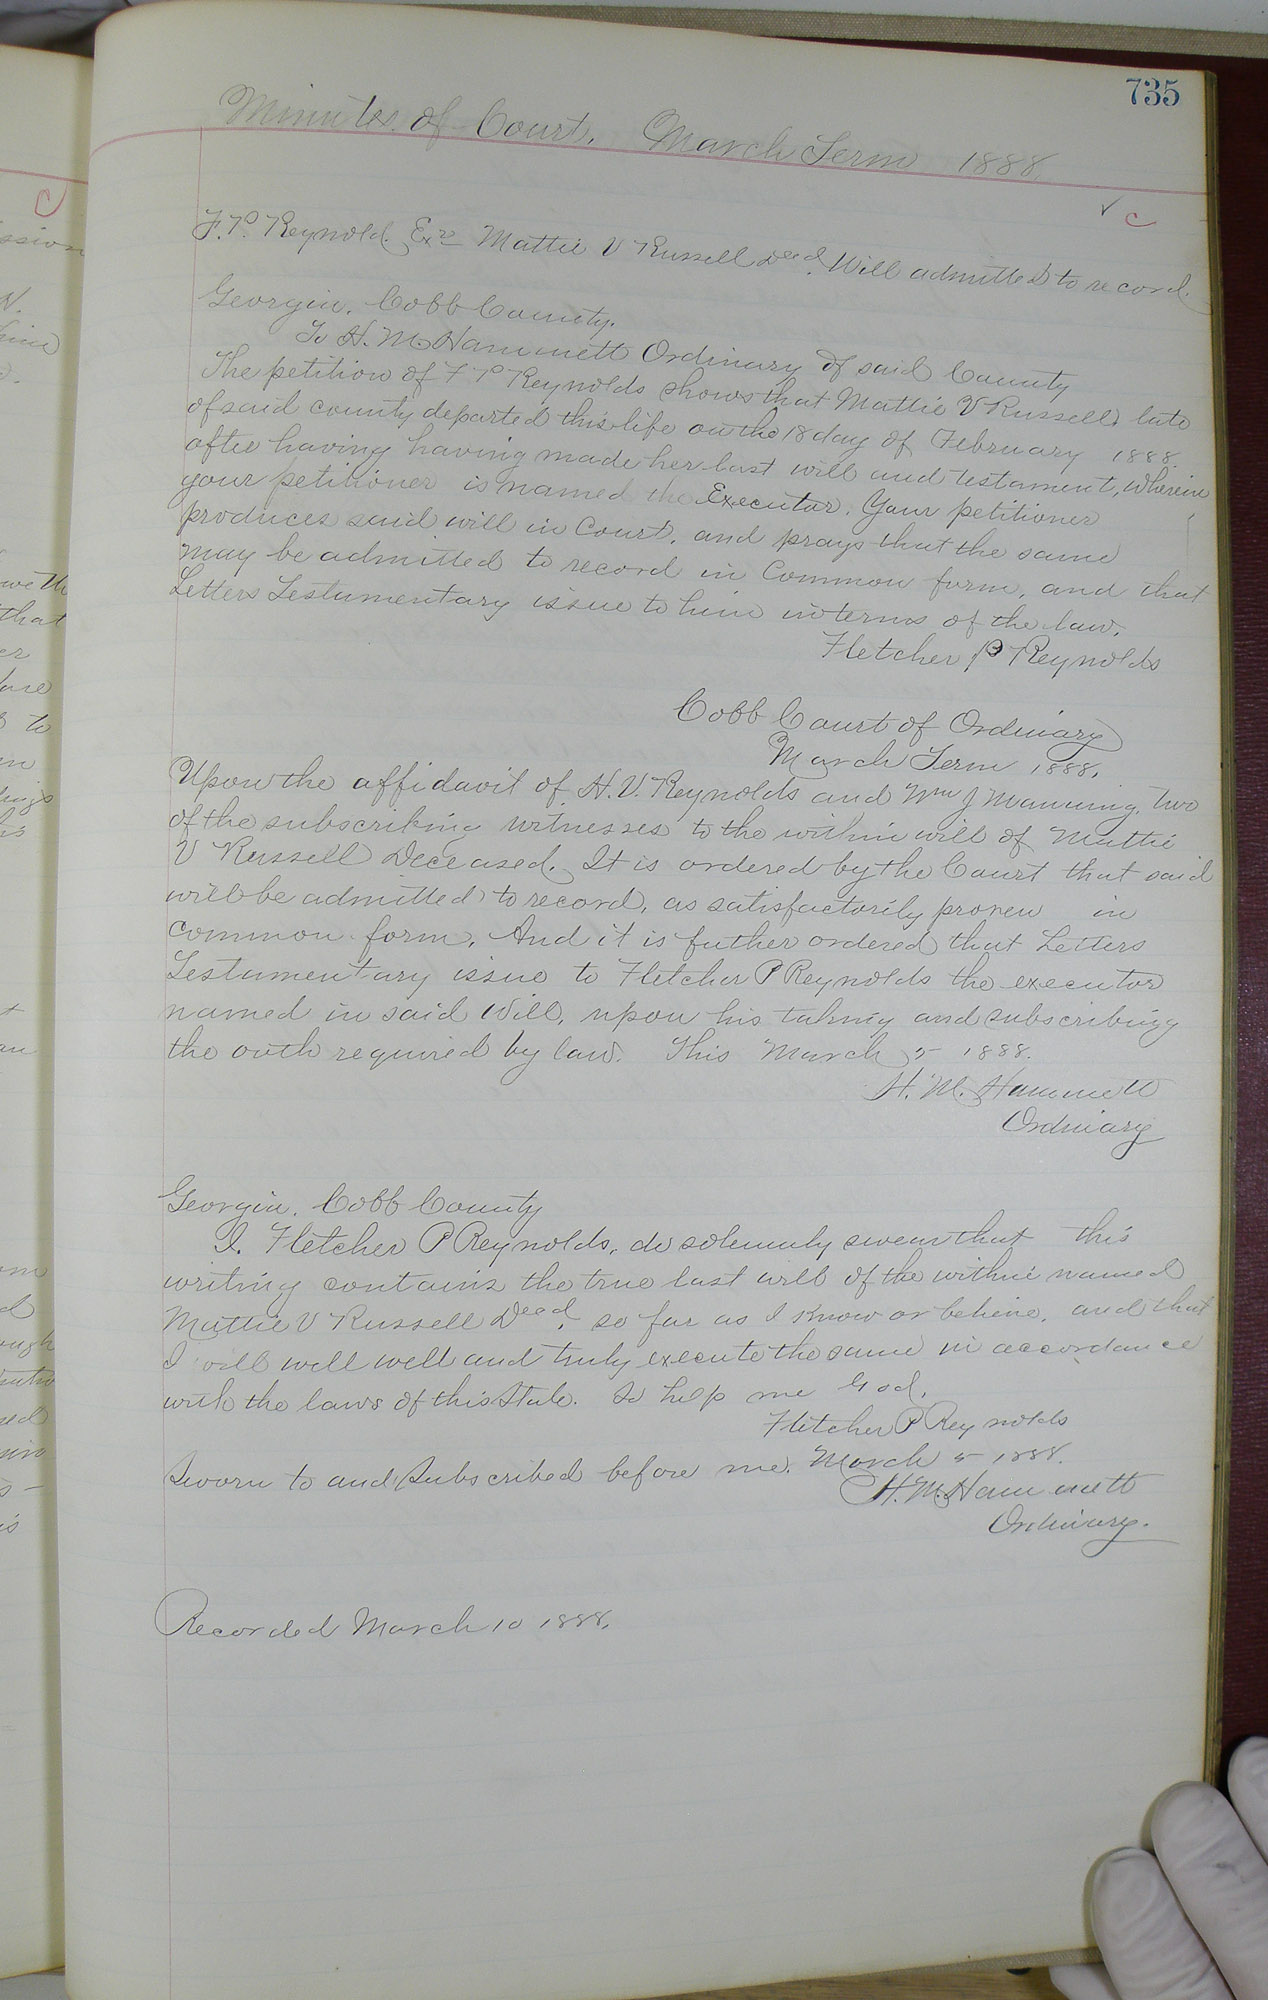 735
Minutes of Court. March Term 1888.
F. P. Reynold. Exr. Mattie V Russell Decd. Will admitted to record.
Georgia. Cobb County.
To H. M. Hammett Ordinary of said County
The petition of F P Reynolds shows that Mattie V Russell late
of said county departed this life on the 18 day of February 1888.
after having having made her last will and testament, wherein
your petitioner is named the Executor. Your petitioner
produces said will in Court, and prays that the same
may be admitted to record in Common form, and that
Letters Testamentary issue to him in terms of the law.
Fletcher P Reynolds
Cobb Court of Ordinary
March Term 1888.
Upon the affidavit of H. V. Reynolds and Wm J Manning, two
of the subscribing witnesses to the within will of Mattie
V Russell Deceased. It is ordered by the Court that said
will be admitted to record, as satisfactorily proven in
common form. And it is futher ordered that Letters
Testamentary issue to Fletcher P Reynolds the executor
named in said Will, upon his taking and subscribing
the oath required by law. This March 5 1888.
H. M. Hammett
Ordinary
Georgia. Cobb County
I. Fletcher P Reynolds, do solemnly swear that this
writing contains the true last will of the within named
Mattie V Russell Decd, so far as I know or believe, and that
I will well well and truly execute the same in accordance
with the laws of this State. So help me God.
Fletcher P Reynolds
Sworn to and Subscribed before me. March 5 1888.
H. M. Hammett
Ordinary.
Recorded March 10 1888.